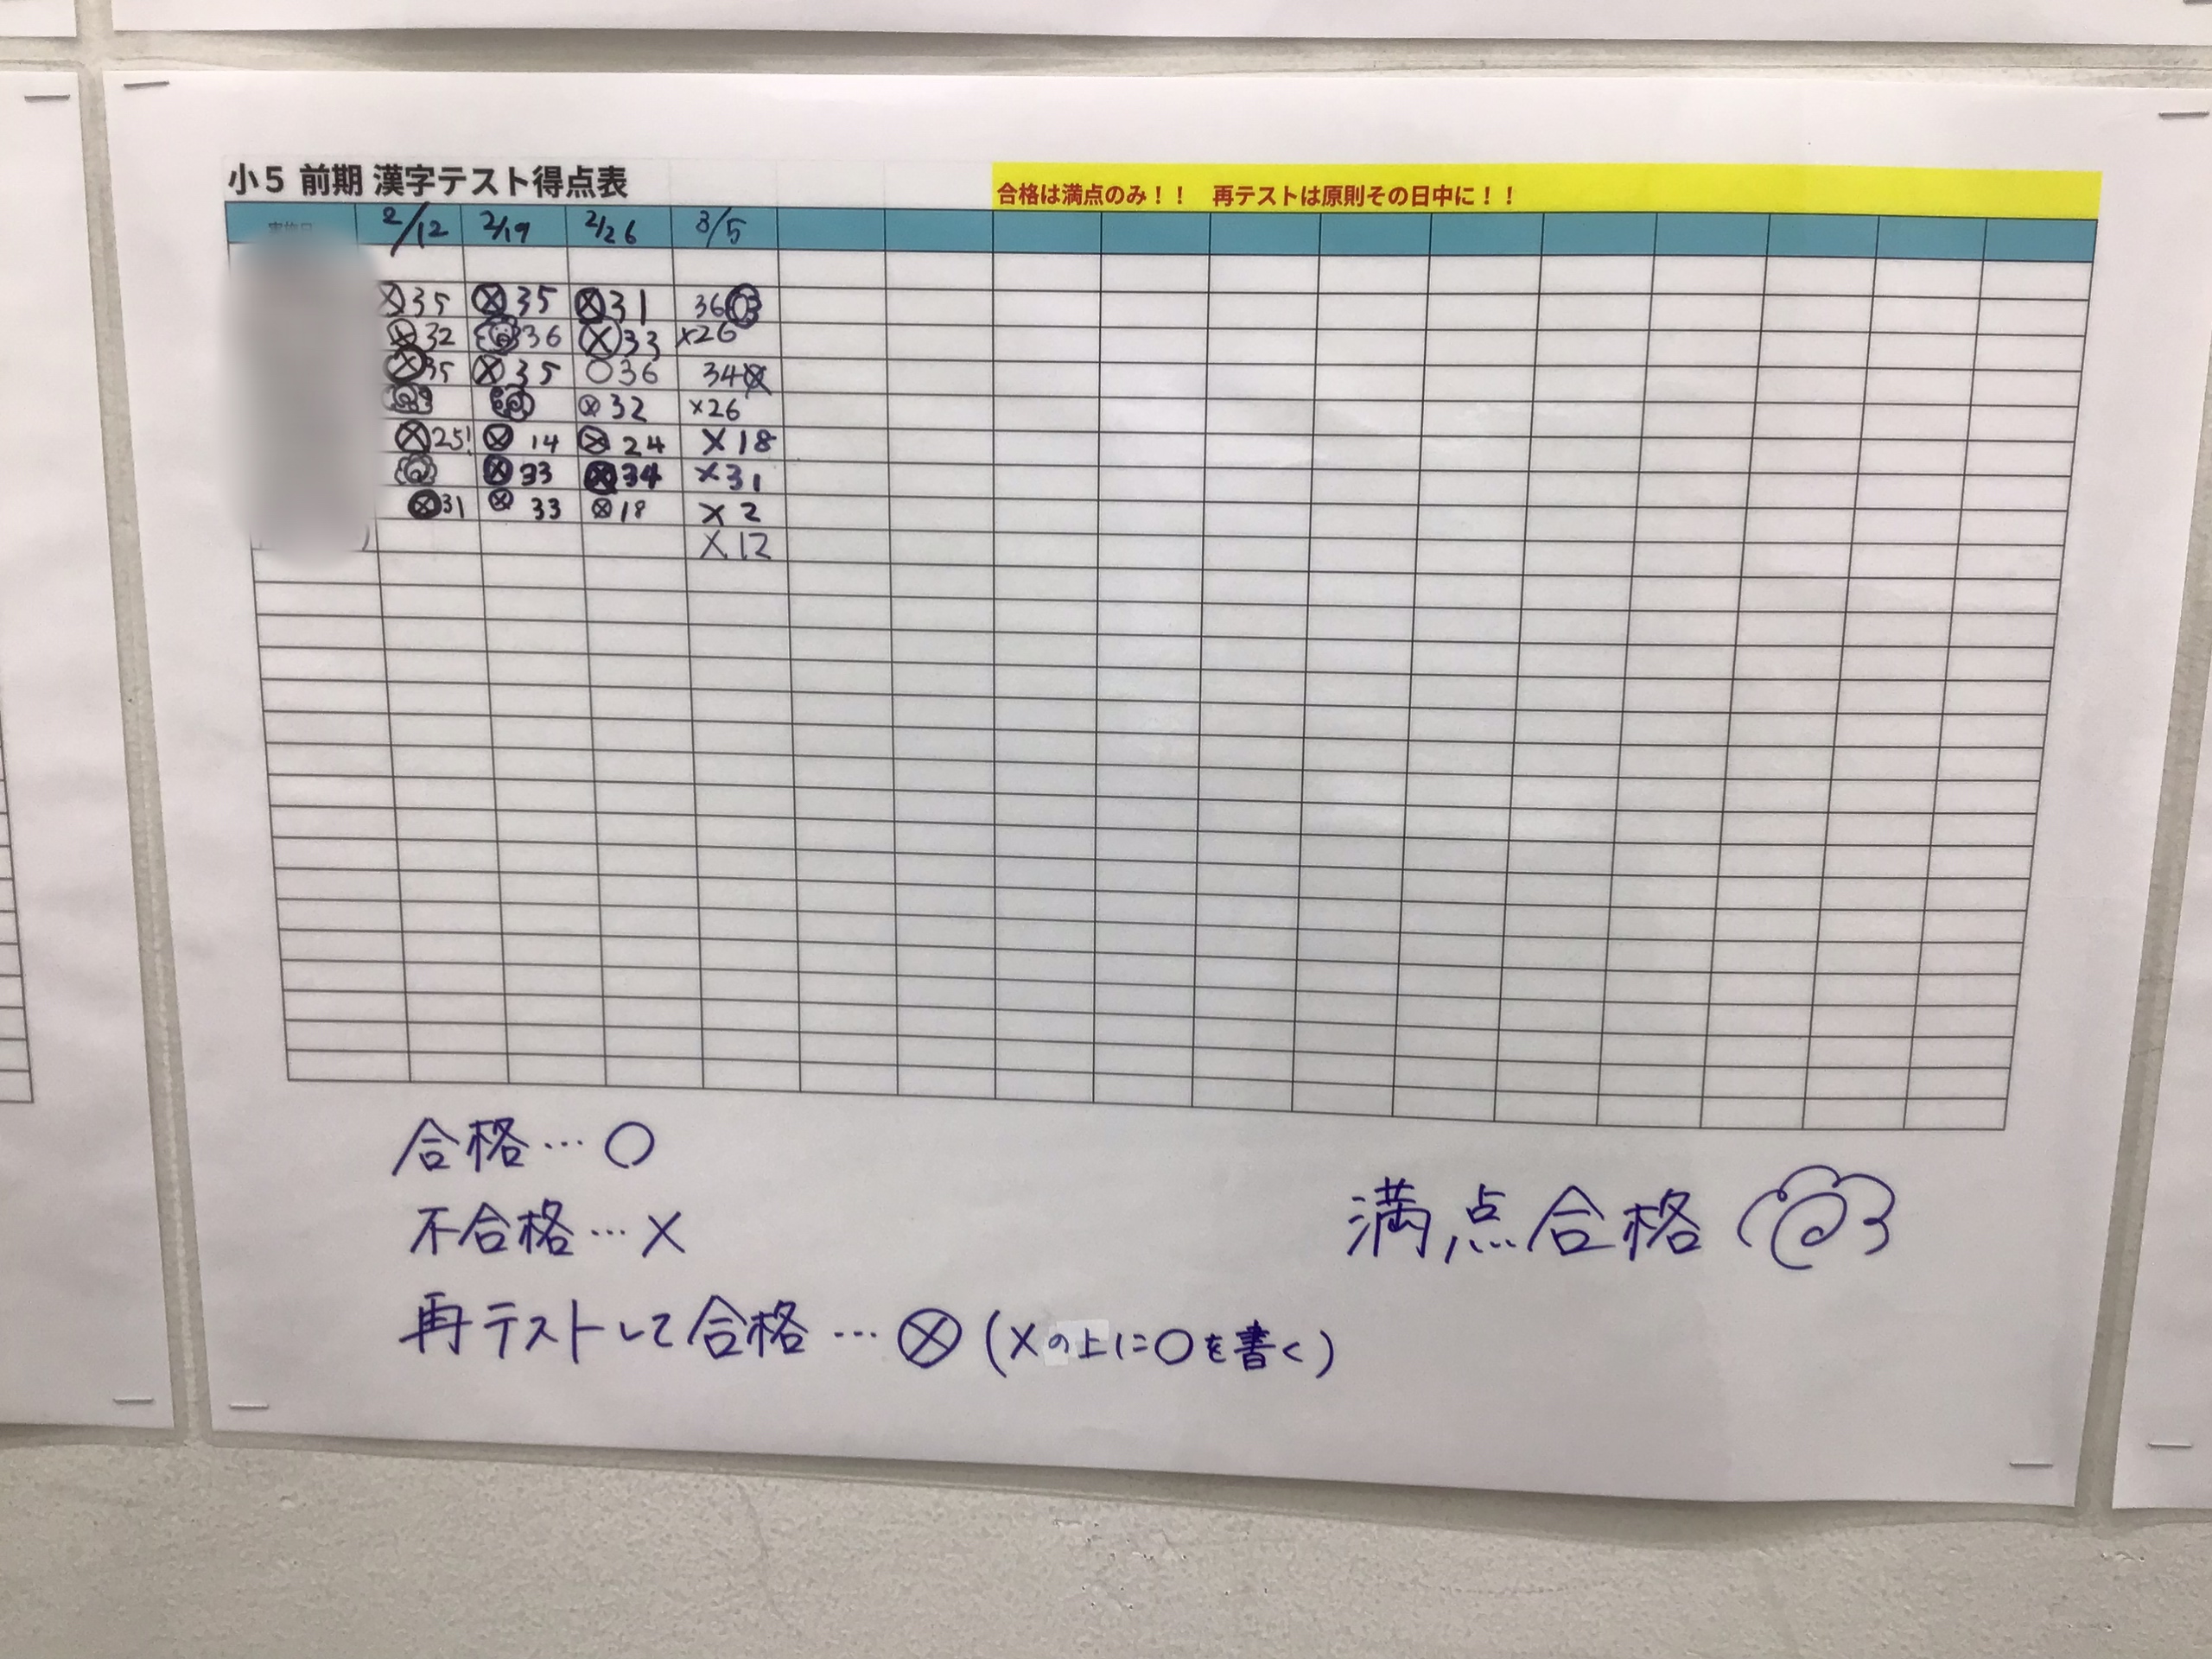 小5 前期 漢字テスト得点表
合格は満点のみ!! 再テストは原則その日中に!!
2/12 2/19 2/26 3/5
⊗35 ⊗35 ⊗31 36
⊗32 36 ⊗33 ×26
⊗35 ⊗35 ○36 34⊗
⊗32 ×26
⊗25! ⊗14 ⊗24 ×18
⊗33 ⊗34 ×31
⊗31 ⊗33 ⊗18 ×2
×12
合格…○
不合格…×
満点合格
再テストして合格…⊗(×の上に○を書く)